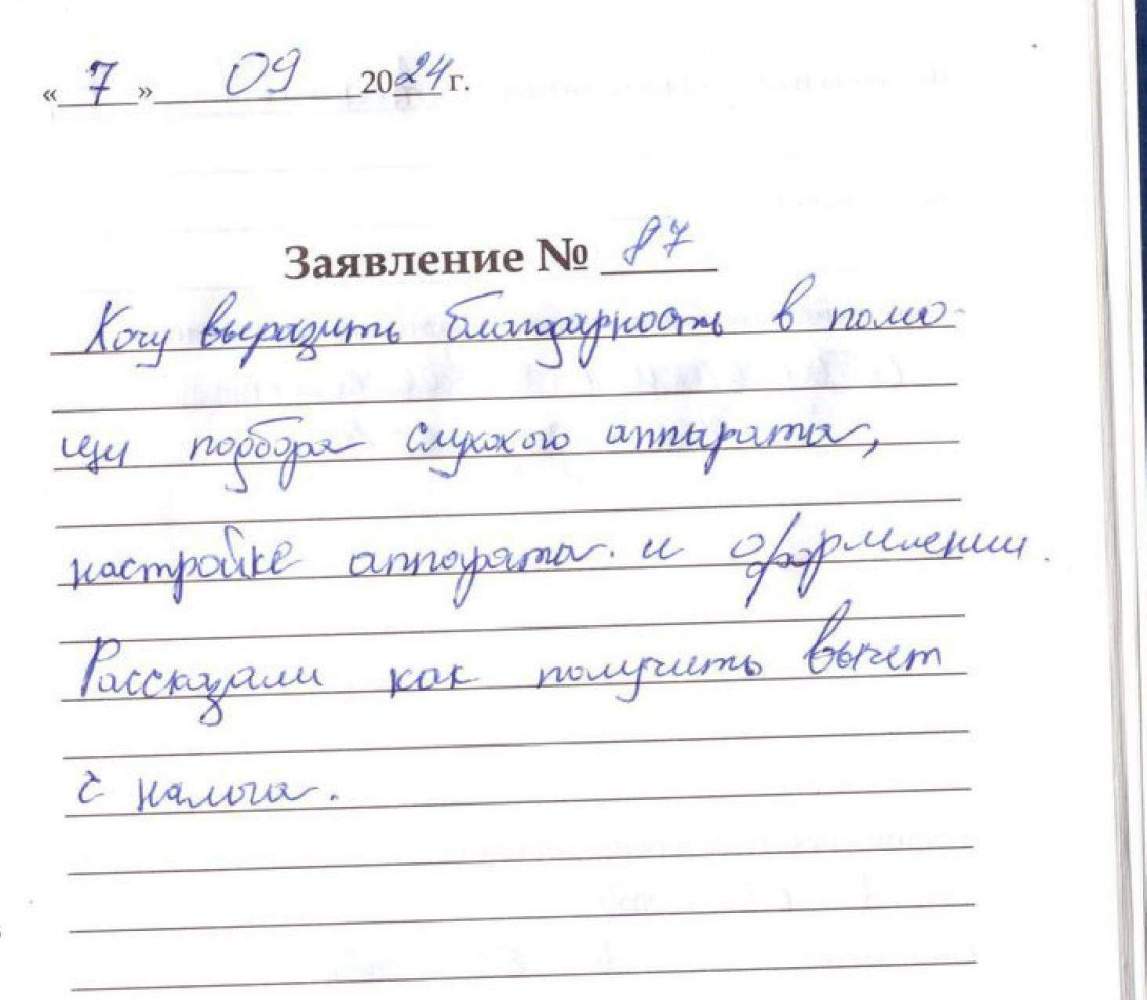 «7» 09 2024 г.
Заявление № 87
Хочу выразить благодарность в помо-
щи подбора слухого аппарата,
настройке аппарата и оформлении.
Рассказали как получить вычет
с налога.